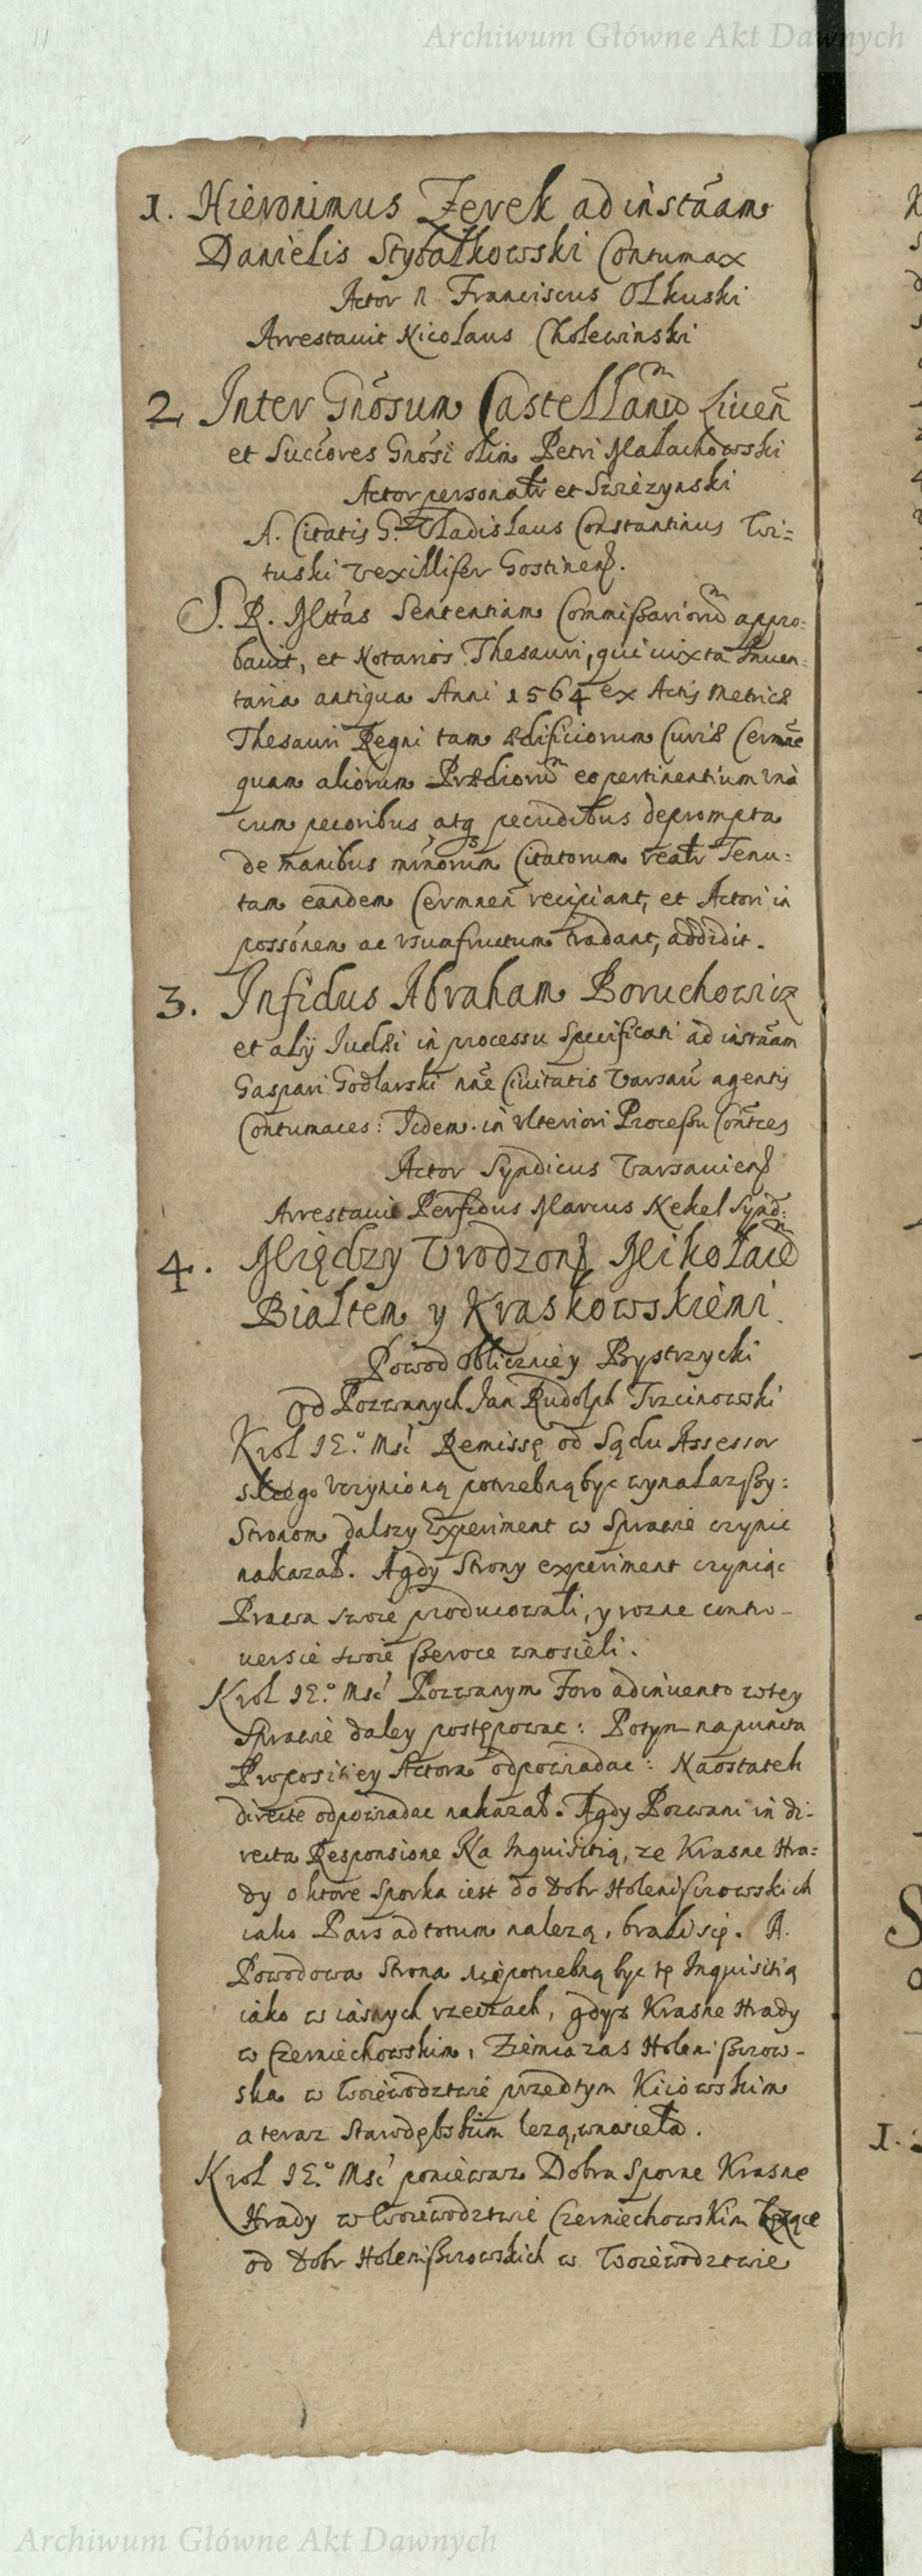 Archiwum Główne Akt Dawnych
1. Hieronimus Zerek ad instãam
Danielis Stybałkowski Contumax
Actor n. Franciscus Olkuski
Arrestauit Nicolaus Cholewinski
2. Inter Gnõsum Castellanũ Liueñ
et Succõres Gnõsi olim Petri Małachowski
Actor personalr et Swiezynski
A. Citatis G. Vladislaus Constantinus Wi=
tuski vexillifer Gostinenß.
S. R. Mttas Sententiam Commißariorũ appro=
bauit, et Notarios Thesauri, qui iuxta Inuen=
taria antiqua Anni 1564 ex Actis Metricæ
Thesauri Regni tam ædificiorum Curiæ Cermñe
quam aliorum Prædiorũ eo pertinentium vna
cum pecoribus atq pecudibus deprompta
de manibus minorum Citatorum realr Tenu=
tam eandem Cermneñ recipiant, et Actori in
possõnem ac vsumfructum tradant, addidit.
3. Infidus Abraham Boruchowicz
et alÿ Iudæi in processu specificati ad instãam
Gaspari Godlarski nñe Ciuitatis Varsau agentis
Contumaces: Idem in vlteriori Proceßu Contces
Actor Syndicus Varsauienß
Arrestauit Perfidus Marcus Nekel Synd:
4. Między Vrodzonẏ Mikołaiẽ
Białtem y Kraskowskiemi
Powod obliczniey Bystrzycki
od Pozwanych Jan Rudolph Trzcinowski
Krol IE.º Msć Remissę od Sądu Assessor
skiego vczynioną potrzebną byc wynalazßy:
Stronom dalszy Experiment w Sprawie czynic
nakazał. Agdy Strony experiment czyniąc
Prawa swoie producowali, y rozne contro-
uersie swoie ßeroce wnosieli.
Krol IE.º Msć Pozwanym Foro adinuento wtey
Sprawie daley postępowac: Potym na puncta
Propositiey Actora odpowiadac: Naostatek
directe odpowiadac nakazał. Agdy Pozwani in di-
recta Responsione Na Inquisitią, ze Krasne Hra=
dy o ktore Sporka iest do Dobr Holenißczowskich
iako Pars ad totum nalezą, brali się. A.
Powodowa Strona niepotrzebną byc tę Inquisitią
iako w iasnych rzeczach, gdyz Krasne Hrady
w Czerniechowskim, Ziemia zas Holenißczow-
ska w Woiewodztwie przedtym Kiiowskim
a teraz Starodębskim lezą, wnosieła.
Krol IE.º Msć poniewaz Dobra Sporne Krasne
Hrady w Woiewodztwie Czerniechowskim lezące
od Dobr Holenißczowskich w Woiewodztwie
Archiwum Główne Akt Dawnych